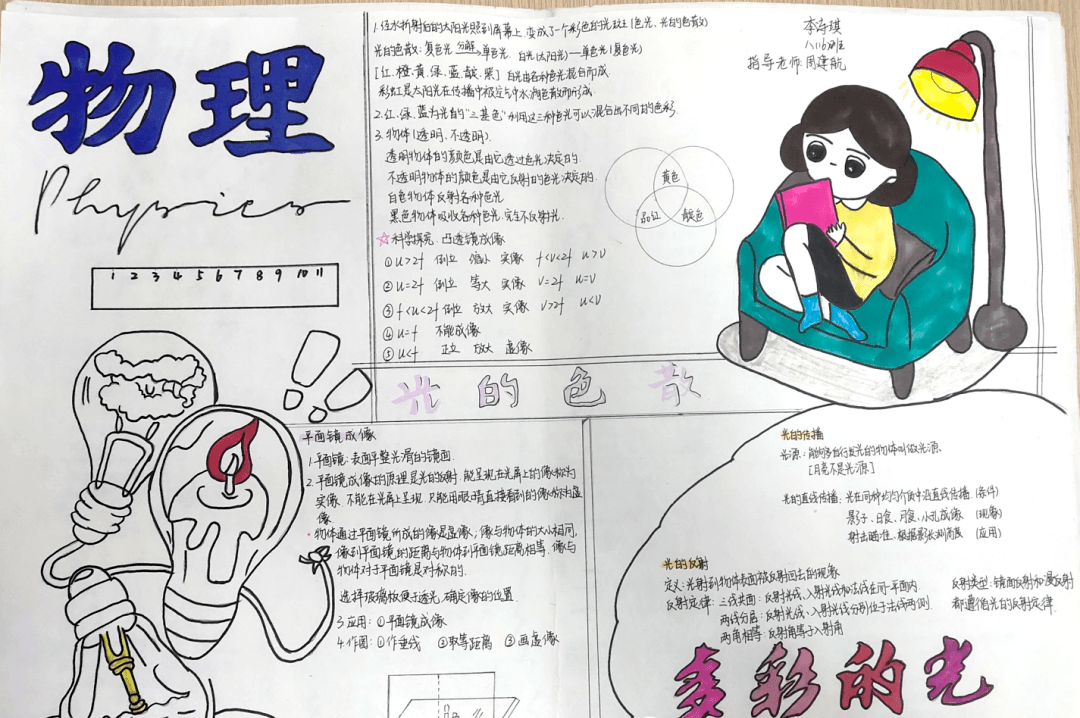 物理
Physics
1 2 3 4 5 6 7 8 9 10 11
1.经水折射后的太阳光照到屏幕上,变成了一个彩色的光斑(色光、光的色散)
光的色散:复色光 分解→ 单色光. 白光(太阳光)—单色光(复色光)
[红、橙、黄、绿、蓝、靛、紫] 白光由各种色光混合而成
彩虹是太阳光在传播中被空气中水滴色散而形成
2.红、绿、蓝为光的"三基色"利用这三种色光可以混合出不同的色彩.
3.物体(透明、不透明).
透明物体的颜色是由它透过色光决定的
不透明物体的颜色是由它反射的色光决定的.
白色物体反射各种色光
黑色物体吸收各种色光,完全不反射光.
☆科学探究:凸透镜成像
①u>2f 倒立 缩小 实像 f<v<2f u>v
②u=2f 倒立 等大 实像 v=2f u=v
③f<u<2f 倒立 放大 实像 v>2f u<v
④u=f 不能成像
⑤u<f 正立 放大 虚像
黄色
品红 靛色
李诗琪
八(16)班
指导老师 周建航
光的色散
平面镜成像
1.平面镜:表面平整光滑的镜面.
2.平面镜成像的原理是光的反射.能呈现在光屏上的像称为
实像.不能在光屏上呈现.只能用眼睛直接看到的像称为虚
像
·物体通过平面镜所成的像是虚像;像与物体的大小相同,
像到平面镜的距离与物体到平面镜距离相等.像与
物体对于平面镜是对称的.
选择玻璃板便于透光,确定像的位置.
3.应用:①平面镜成像
4.作图:①作垂线 ②取等距离 ③画虚像
光的传播
光源:能够自行发光的物体叫做光源
[月亮不是光源]
光的直线传播:光在同种均匀介质中沿直线传播.(条件)
影子、日食、月食、小孔成像 (现象)
射击瞄准、根据影长测高度 (应用)
光的反射
定义:光射到物体表面被反射回去的现象
反射定律:三线共面:反射光线、入射光线和法线在同一平面内.
两线分居:反射光线、入射光线分别位于法线两侧.
两角相等:反射角等于入射角
反射类型:镜面反射和漫反射
都遵循光的反射定律.
多彩的光